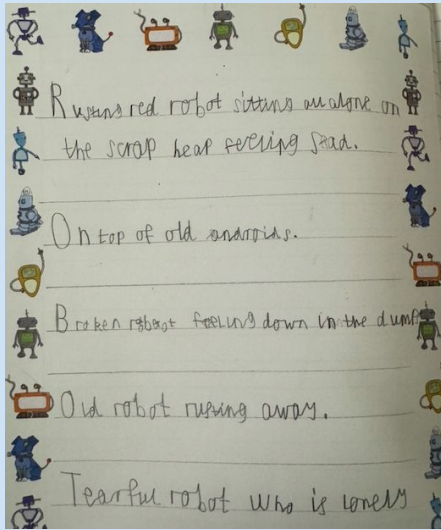 Rusting red robot sitting all alone on
the scrap heap feeling sad.
On top of old androids.
Broken robot feeling down in the dump
Old robot rusting away.
Tearful robot who is lonely